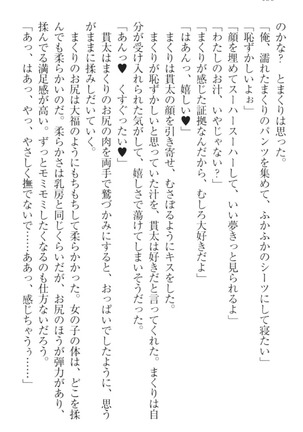 のかな？　とまくりは思った。
「俺、濡れたまくりのパンツを集めて、ふかふかのシーツにして寝たい」
「恥ずかしいよぉ」
「顔を埋めてスーパースーパーして、いい夢きっと見られるよ」
「わたしのお汁、いやじゃない？」
「まくりが感じた証拠なんだから、むしろ大好きだよ」
「あーんっ、嬉しい♥」
まくりは貫太の顔を引き寄せ、むさぼるようにキスをした。
まくりが恥ずかしいと思っていた汁を、貫太は好きだと言ってくれた。まくりは自
分が受け入れられた気がして、嬉しさで蕩けてしまいそうだった。
「あんっ♥　くすぐったい♥」
貫太はまくりのお尻の肉を両手で鷲づかみにすると、おっぱいでしたように、思う
がままに揉みしだいていく。
まくりのお尻は大福のようにもちもちして柔らかかった。女の子の体は、どこを揉
んでも柔らかい。柔らかさは乳房と同じくらいだが、お尻のほうが弾力があり、
揉んでる満足感が高い。ずっとモミモミしたくなるのも仕方ないだろう。
「あっ、はあっ、やっ、やさしく撫でないで……ああっ、感じちゃうぅ……」